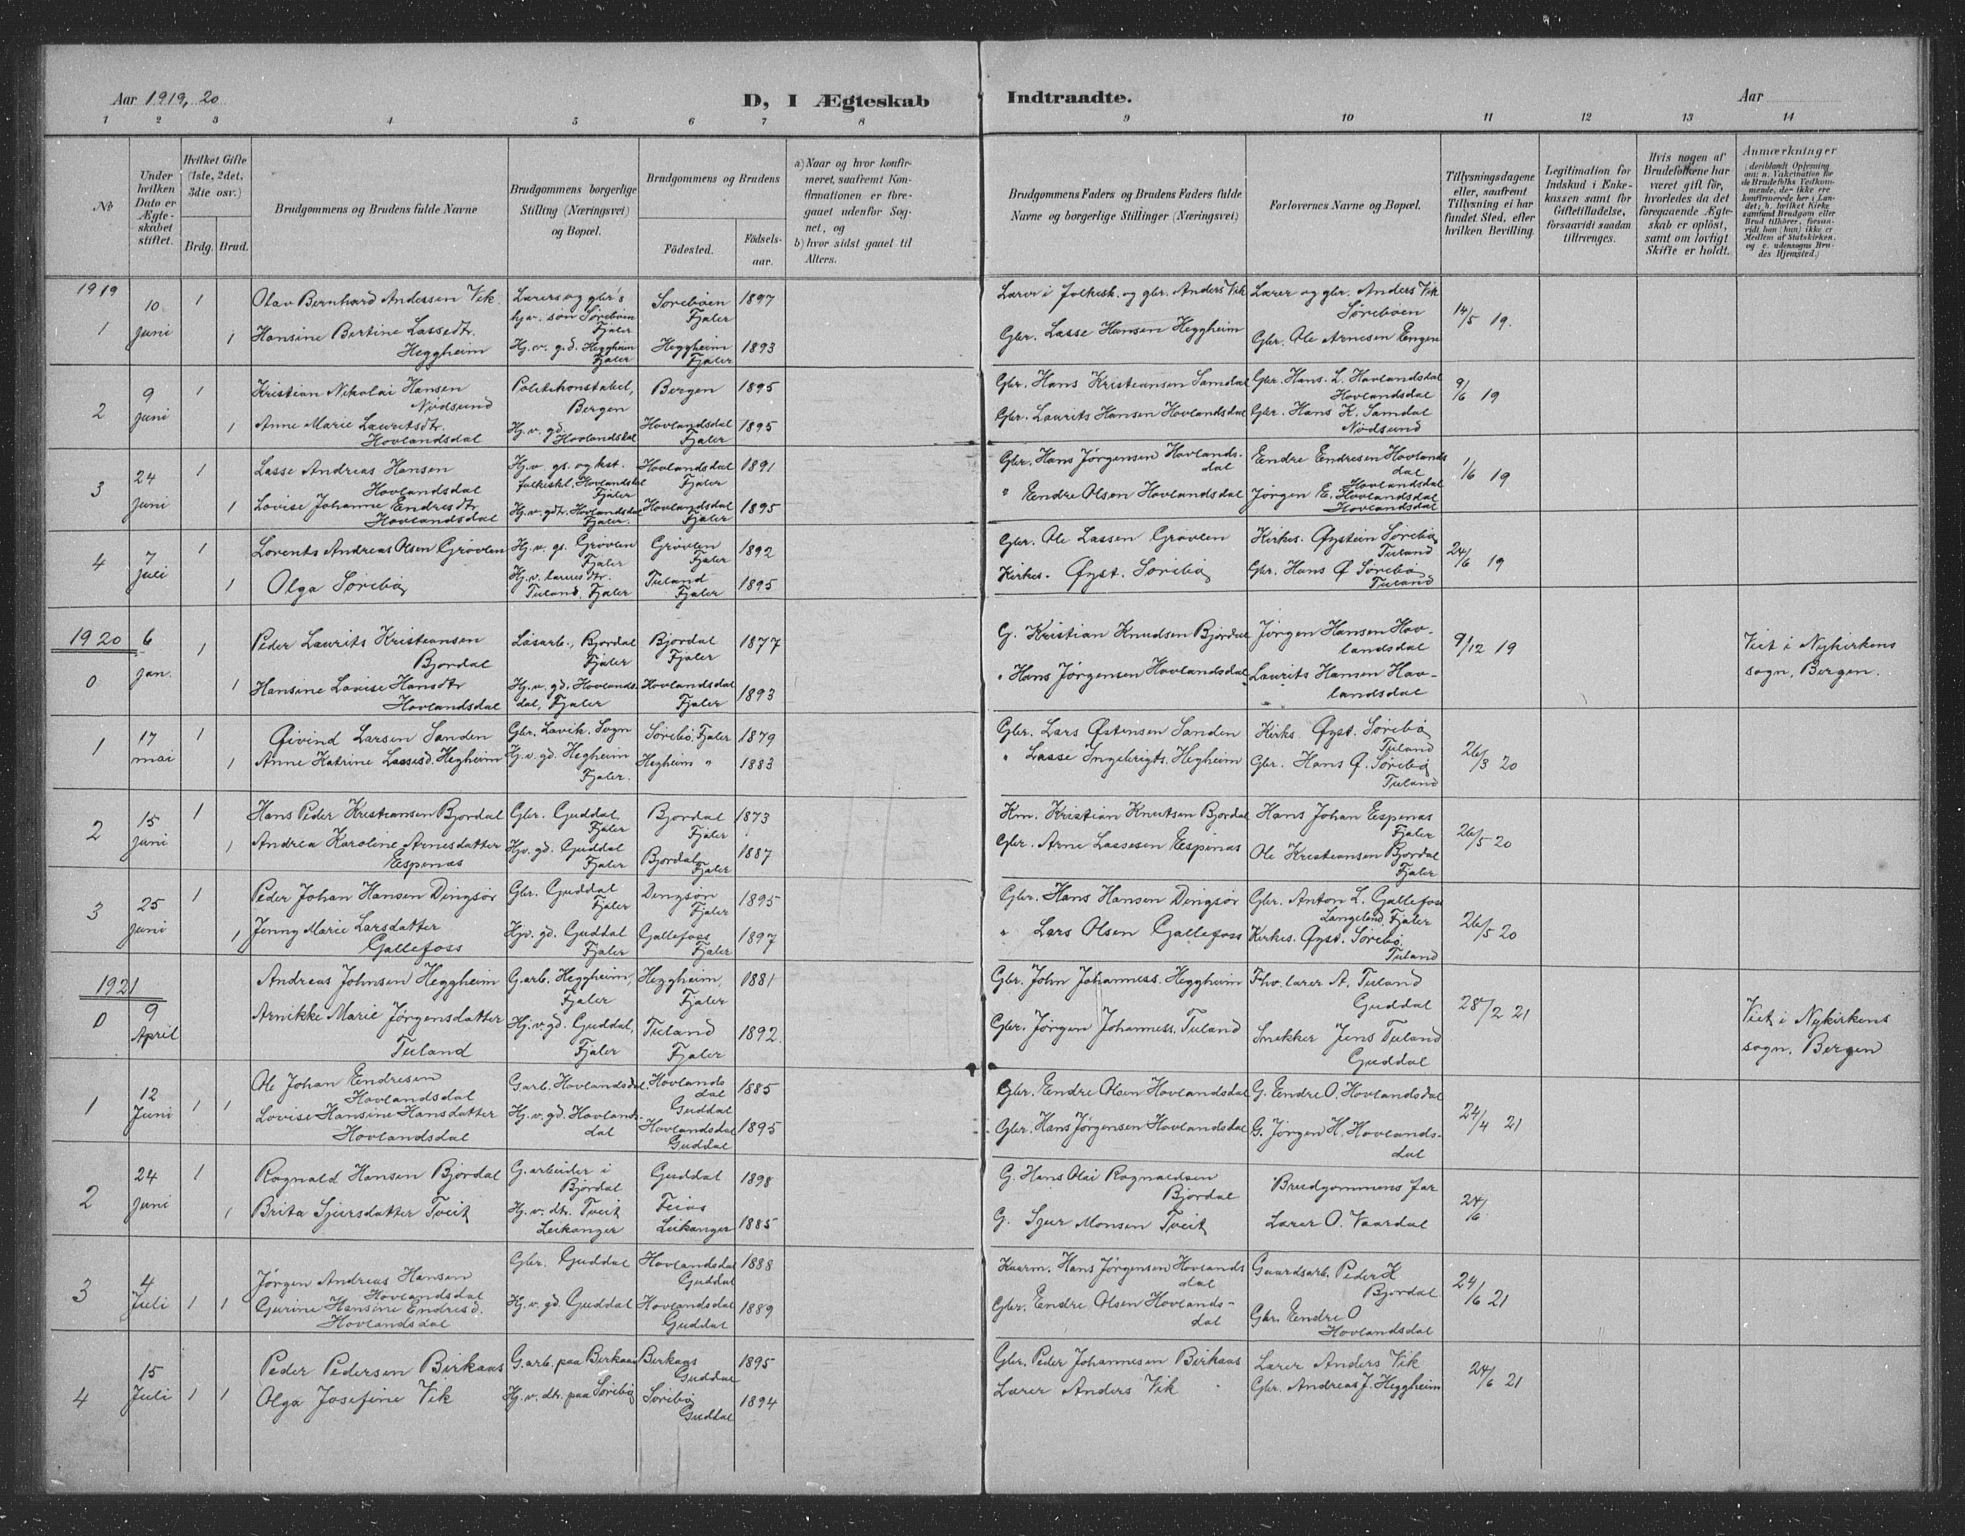 Aar 1919, 20
D, I Ægteskab Indtraadte.
Aar
1 2 3 4 5 6 7 8 9 10 11 12 13 14
No
Under hvilken Dato er Ægteskabet stiftet.
Hvilket Gifte (1ste, 2det, 3die osv.)
Brdg. Brud.
Brudgommens og Brudens fulde Navne
Brudgommens borgerlige Stilling (Næringsvei) og Bopæl.
Brudgommens og Brudens
Fødested.
Fødselsaar.
a) Naar og hvor konfirmeret, saafremt Konfirmationen er foregaaet udenfor Sognet, og
b) hvor sidst gaaet til Alters.
Brudgommens Faders og Brudens Faders fulde Navne og borgerlige Stillinger (Næringsvei)
Forlovernes Navne og Bopæl.
Tillysningsdagene eller, saafremt Tillysning ei har fundet Sted, efter hvilken Bevilling.
Legitimation for Indskud i Enkekassen samt for Giftetilladelse, forsaavidt saadan tiltrænges.
Hvis nogen af Brudefolkene har været gift før, hvorledes da det foregaaende Ægteskab er opløst, samt om lovligt Skifte er holdt.
Anmærkninger
(deriblandt Oplysning om: a. Vakcination for de Brudefolks Vedkommende, der ikke ere konfirmerede her i Landet; b. hvilket Kirkesamfund Brudgom eller Brud tilhører, forsaavidt han (hun) ikke er Medlem af Statskirken, og c. udensogns Brudes Hjemsted.)
1919
1 10 juni 1 Olav Bernhard Andersen Vik Lærers og gbr's hj.v. søn Sørebøen Fjaler Sørebøen Fjaler 1897 Lærer i folkesk. og gbr. Anders Vik Lærer og gbr. Anders Vik Sørebøen 14/5 19.
1 Hansine Bertine Lassedtr. Heggheim Hj.v. g.d. Heggheim Fjaler Heggheim Fjaler 1893 Gbr. Lasse Hansen Heggheim Gbr. Ole Arnesen Engen
2 9 juni 1 Kristian Nikolai Hansen Nødsund Politikonstabel, Bergen Bergen 1895 Gbr. Hans Kristiansen Samdal Gbr. Hans. L. Hovlandsdal Hovlandsdal 9/6 19
1 Anne Marie Lauritsdtr. Hovlandsdal Hj.v. gd. Hovlandsdal Hovlandsdal Fjaler 1895 Gbr. Laurits Hansen Hovlandsdal Gbr. Hans K. Samdal Nødsund
3 24 juni 1 Lasse Andreas Hansen Hovlandsdal Hj.v gs. og kst. folkeskl. Hovlandsdal Fjaler Hovlandsdal Fjaler 1891 Gbr. Hans Jørgensen Hovlandsdal Endre Endresen Hovlandsdal Hovlandsdal 1/6 19
1 Lovise Johanne Endresdtr Hovlandsdal Hj.v. gdtr. Hovlandsdal Fjaler. Hovlandsdal Fjaler 1895 " Endre Olsen Hovlandsdal Jørgen E. Hovlandsdal Hovlandsdal
4 7 juli 1 Lorents Andreas Olsen Grøvlen Hj.v. gs. Grøvlen Fjaler Grøvlen Fjaler 1892 Gbr. Ole Lassen Grøvlen Kirkes. Øystein Sørebø Tuland 24/6 19
1 Olga Sørebø Hj.v. læreres dtr. Tuland, Fjaler Tuland Fjaler 1895 Kirkes. Øyst. Sørebø Gbr. Hans Ø Sørebø Tuland
1920
0 6 jan. 1 Peder Laurits Kristiansen Bjordal Løsarb., Bjordal Fjaler Bjordal Fjaler 1877 G. Kristian Knudsen Bjordal Jørgen Hansen Hovlandsdal 9/12 19 Viet i Nykirkens sogn, Bergen.
1 Hansine Lovise Hansdtr Hovlandsdal Hj.v. gd. Hovlandsdal, Fjaler Hovlandsdal Fjaler 1893 " Hans Jørgensen Hovlandsdal Laurits Hansen Hovlandsdal
1 17 mai 1 Øivind Larsen Sanden Gbr. Lavik, Sogn Sørebø, Fjaler 1879 Gbr. Lars Østensen Sanden Kirks. Øyst. Sørebø Tuland 26/3 20
1 Anne Katrine Lassesd. Hegheim Hj.v. gd. Hegheim Fjaler. Hegheim " 1883 " Lasse Ingebrigts. Hegheim Gbr. Hans Ø. Sørebø Tuland
2 15 juni 1 Hans Peder Kristiansen Bjordal Gbr. Guddal Fjaler Bjordal Fjaler 1873 Km. Kristian Knutsen Bjordal Hans Johan Espenæs Fjaler 26/5 20
1 Andrea Karoline Arnesdatter Espenæs Hjv. gd. Guddal Fjaler Bjordal Fjaler 1887 Gbr. Arne Lassesen Espenæs Ole Kristiansen Bjordal Fjaler
3 25 juni 1 Peder Johan Hansen Dingsør Gbr. Guddal Fjaler Dingsør Fjaler 1895 Gbr. Hans Hansen Dingsør Gbr. Anton L. Gallefoss Langeland, Fjaler 26/5 20
1 Jenny Marie Larsdatter Gallefoss Hjv. gd. Guddal Fjaler Gallefoss Fjaler 1897 " Lars Olsen Gallefoss Kirkes. Øyst. Sørebø. Tuland
1921
0 9 April Andreas Johnsen Heggheim G. arb. Heggheim, Fjaler Heggheim, Fjaler 1881 Gbr. John Johanness. Heggheim Fhv. lærer A. Tuland Guddal 28/2 21 Viet i Nykirkens sogn, Bergen
Arnikke Marie Jørgensdatter Tuland Hj.v gd. Guddal, Fjaler Tuland Fjaler 1892. Gbr. Jørgen Johanness. Tuland Snekker Jens Tuland Guddal
1 12 Juni 1 1 Ole Johan Endresen Hovlandsdal Garb. Hovlandsdal Hovlandsdal Guddal 1885 Gbr. Endre Olsen Hovlandsdal G. Endre O. Hovlandsdal 24/4 21
Lovise Hansine Hansdatter Hovlandsdal Hj.v. gd. Hovlandsdal Hovlandsdal Guddal 1895 Gbr. Hans Jørgensen Hovlandsdal G. Jørgen H. Hovlandsdal
2 24 juni 1 Rognald Hansen Bjordal G. arbeider i Bjordal Guddal 1898 G. Hans Olai Rognaldsen Bjordal Brudgommens far 24/6
1 Brita Sjursdatter Tveit Hj.v. dtr. Tveit Leikanger Feios Leikanger 1885 G. Sjur Monsen Tveit Lærer O. Vaardal
3 4 Juli 1 1 Jørgen Andreas Hansen Hovlandsdal Gbr. Guddal Hovlandsdal Guddal 1888 Kaarm. Hans Jørgensen Hovlandsdal Gaardsarb. Peder K Bjordal 24/6 21
Gurine Hansine Endresd. Hovlandsdal Hj.v. gd. Guddal Hovlandsdal Guddal 1889 Gbr. Endre Olsen Hovlandsdal Gbr. Endre O Hovlandsdal
4 15 Juli 1 1 Peder Pedersen Birkaas G. arb. paa Birkaas Birkaas Guddal 1895 Gbr. Peder Johannesen Birkaas Lærer Anders Vik 24/6 21
Olga Josefine Vik Hj.v. dtr. paa Sørebø Sørebø Guddal 1894 Lærer Anders Vik Gbr. Andreas J. Heggheim